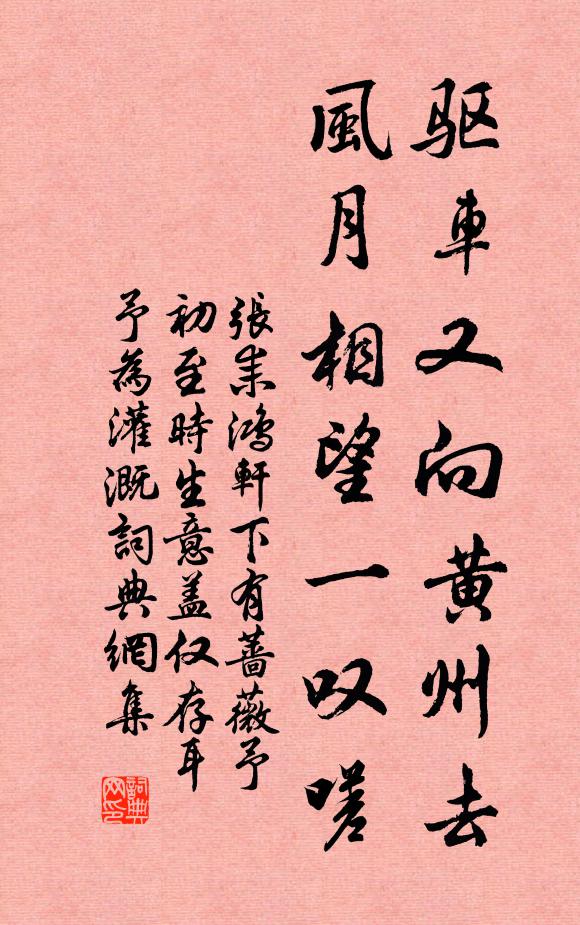 驱車又向黄州去
風月相望一叹嗟
張耒鴻軒下有薔薇予
初至時生意盖仅存耳
予為灌溉詞典網集
詞典网印